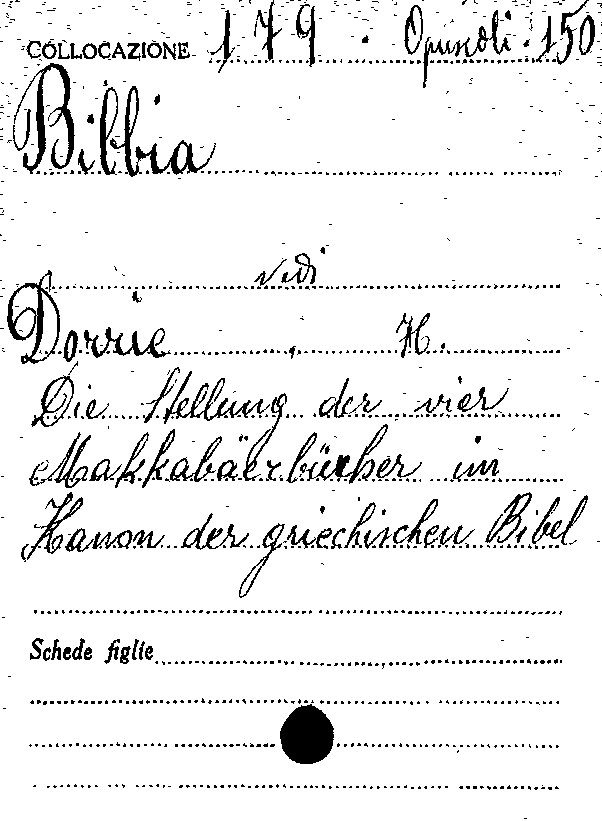 COLLOCAZIONE 179 . Opuscoli . 150
Bibbia
vedi
Dorrie , H.
Die Stellung der vier
Makkabäerbücher im
Kanon der griechischen Bibel
Schede figlie